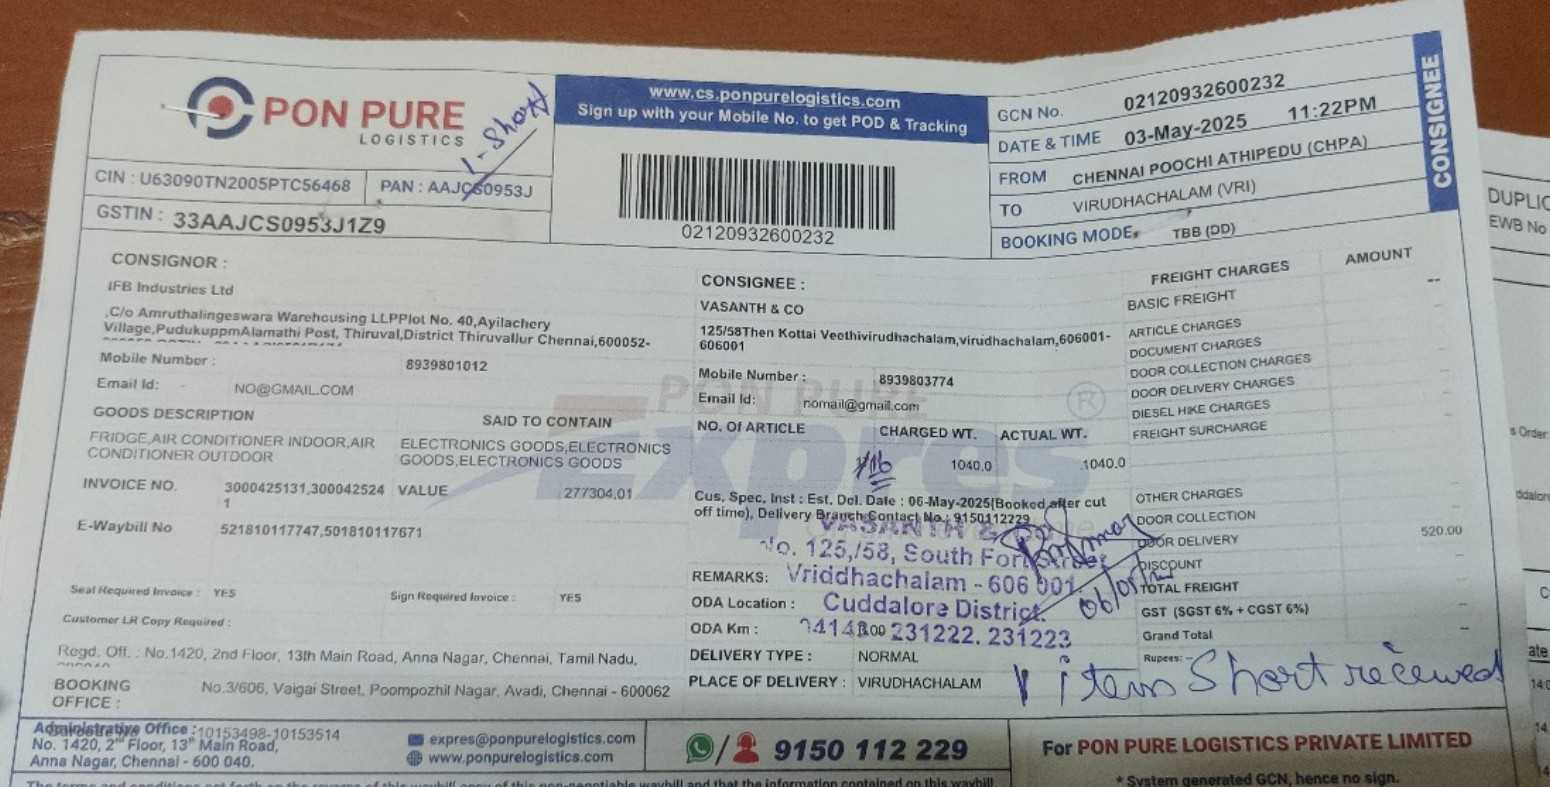 PON PURE
LOGISTICS
1-Short
CIN : U63090TN2005PTC56468
PAN : AAJCS0953J
GSTIN : 33AAJCS0953J1Z9
www.cs.ponpurelogistics.com
Sign up with your Mobile No. to get POD & Tracking
02120932600232
GCN No. 02120932600232
DATE & TIME 03-May-2025 11:22PM
FROM CHENNAI POOCHI ATHIPEDU (CHPA)
TO VIRUDHACHALAM (VRI)
BOOKING MODE TBB (DD)
CONSIGNEE
CONSIGNOR :
IFB Industries Ltd
,C/o Amruthalingeswara Warehousing LLPPlot No. 40,Ayilachery
Village,PudukuppmAlamathi Post, Thiruval,District Thiruvallur Chennai,600052-
Mobile Number : 8939801012
Email Id: - NO@GMAIL.COM
GOODS DESCRIPTION SAID TO CONTAIN
FRIDGE,AIR CONDITIONER INDOOR,AIR CONDITIONER OUTDOOR
ELECTRONICS GOODS,ELECTRONICS GOODS,ELECTRONICS GOODS
INVOICE NO. 3000425131,300042524
1
VALUE 277304.01
E-Waybill No 521810117747,501810117671
Seal Required Invoice : YES
Sign Required Invoice : YES
Customer LR Copy Required :
Regd. Off. : No.1420, 2nd Floor, 13th Main Road, Anna Nagar, Chennai, Tamil Nadu,
BOOKING OFFICE : No.3/606, Vaigai Street, Poompozhil Nagar, Avadi, Chennai - 600062
CONSIGNEE :
VASANTH & CO
125/58Then Kottai Veethivirudhachalam,virudhachalam,606001-
606001
Mobile Number : 8939803774
Email Id: nomail@gmail.com
PON PURE
Expres
®
NO. Of ARTICLE CHARGED WT. ACTUAL WT.
16 1040.0 1040.0
Cus, Spec, Inst : Est. Del. Date : 06-May-2025(Booked after cut
off time), Delivery Branch Contact No : 9150112229
VASANTH & CO
No. 125,/58, South Fort Street
REMARKS: Vriddhachalam - 606 001.
ODA Location : Cuddalore District.
ODA Km : 231222. 231223
DELIVERY TYPE : NORMAL
PLACE OF DELIVERY : VIRUDHACHALAM
FREIGHT CHARGES AMOUNT
BASIC FREIGHT --
ARTICLE CHARGES
DOCUMENT CHARGES
DOOR COLLECTION CHARGES
DOOR DELIVERY CHARGES
DIESEL HIKE CHARGES
FREIGHT SURCHARGE
OTHER CHARGES
DOOR COLLECTION
DOOR DELIVERY 520.00
DISCOUNT
TOTAL FREIGHT
GST (SGST 6% + CGST 6%)
Grand Total
Rupees: --
1 item Short received
Administrative Office : 10153498-10153514
No. 1420, 2nd Floor, 13th Main Road,
Anna Nagar, Chennai - 600 040.
expres@ponpurelogistics.com
www.ponpurelogistics.com
9150 112 229
For PON PURE LOGISTICS PRIVATE LIMITED
* System generated GCN, hence no sign.
The terms and conditions set forth on the reverse of this waybill copy of this non-negotiable waybill and that the information contained on this waybill
EWB No